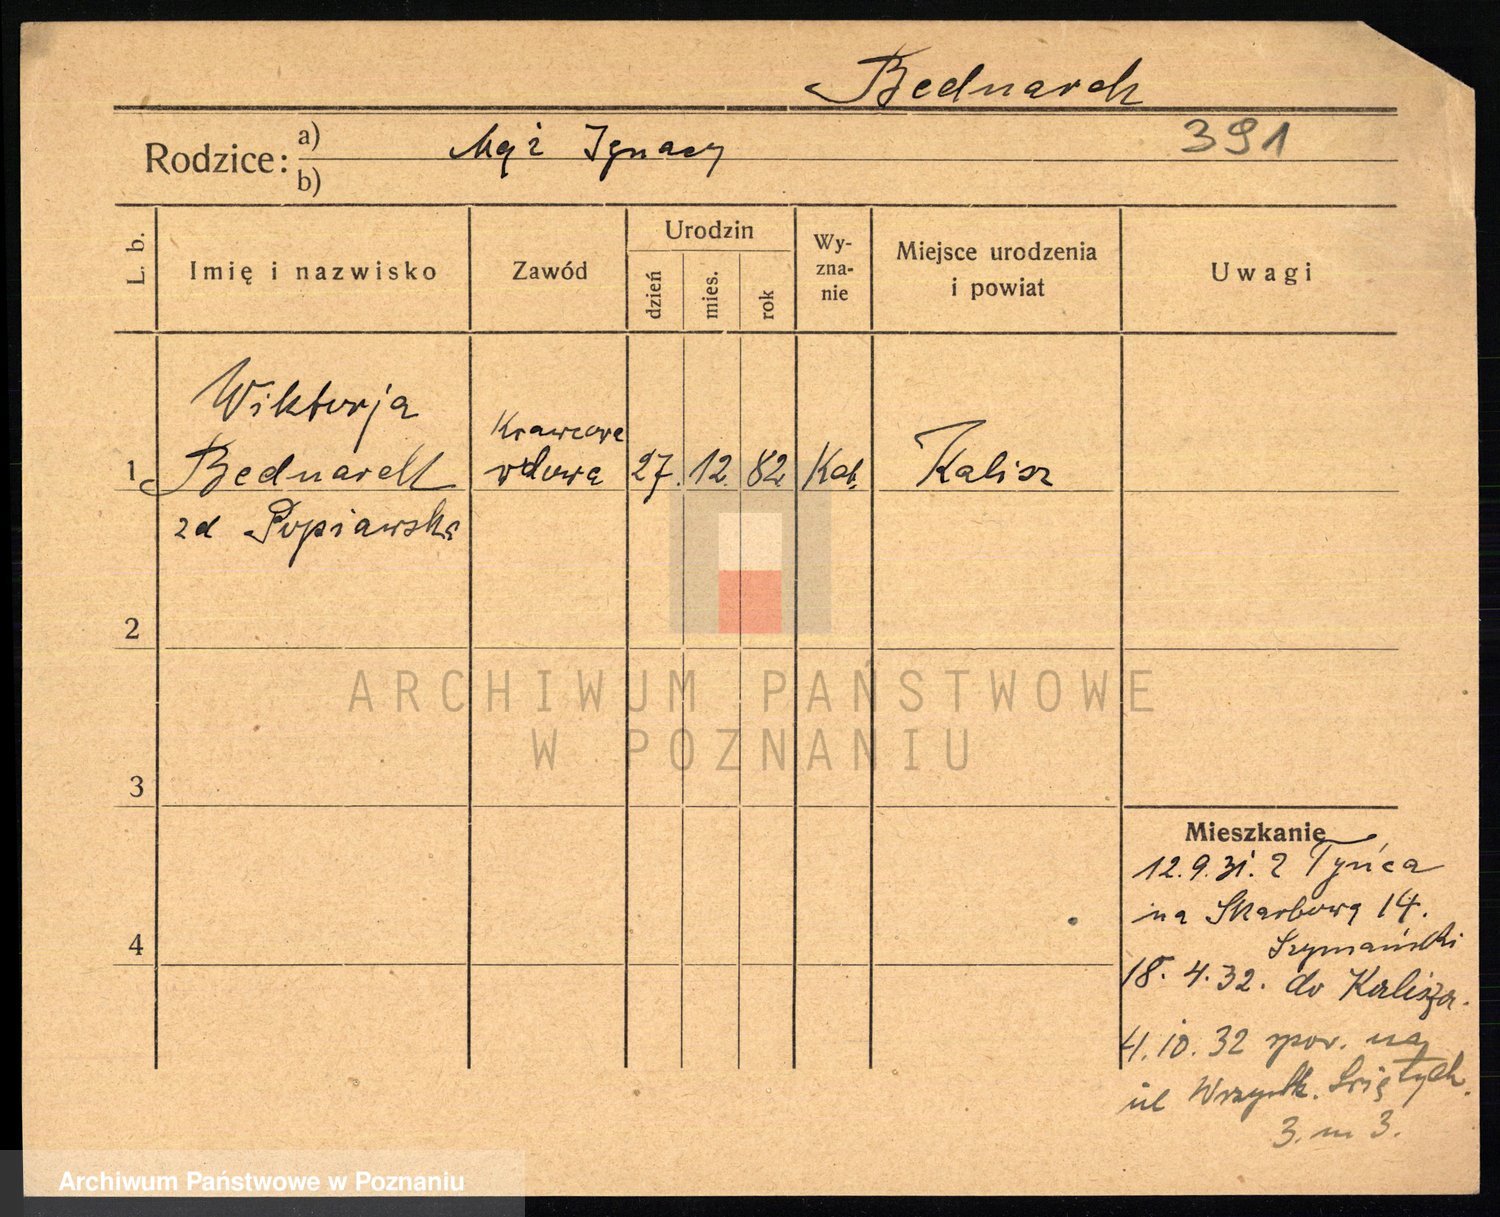 Bednarek
391
Rodzice: a) Mąż Ignacy
b)
L. b.
Imię i nazwisko
Zawód
Urodzin
dzień
mies.
rok
Wy-
zna-
nie
Miejsce urodzenia
i powiat
Uwagi
Wiktorja
Krawcowa
1 Bednarek wdowa 27. 12. 82 Kat. Kalisz
zd Popiawska
2
ARCHIWUM PAŃSTWOWE
W POZNANIU
3
Mieszkanie
12.9.31. z Tyńca
na Skarbową 14.
Szymański
4
18. 4. 32. do Kalisza.
4. 10. 32 na
ul Wszystk. Świętych.
3. m 3.
Archiwum Państwowe w Poznaniu